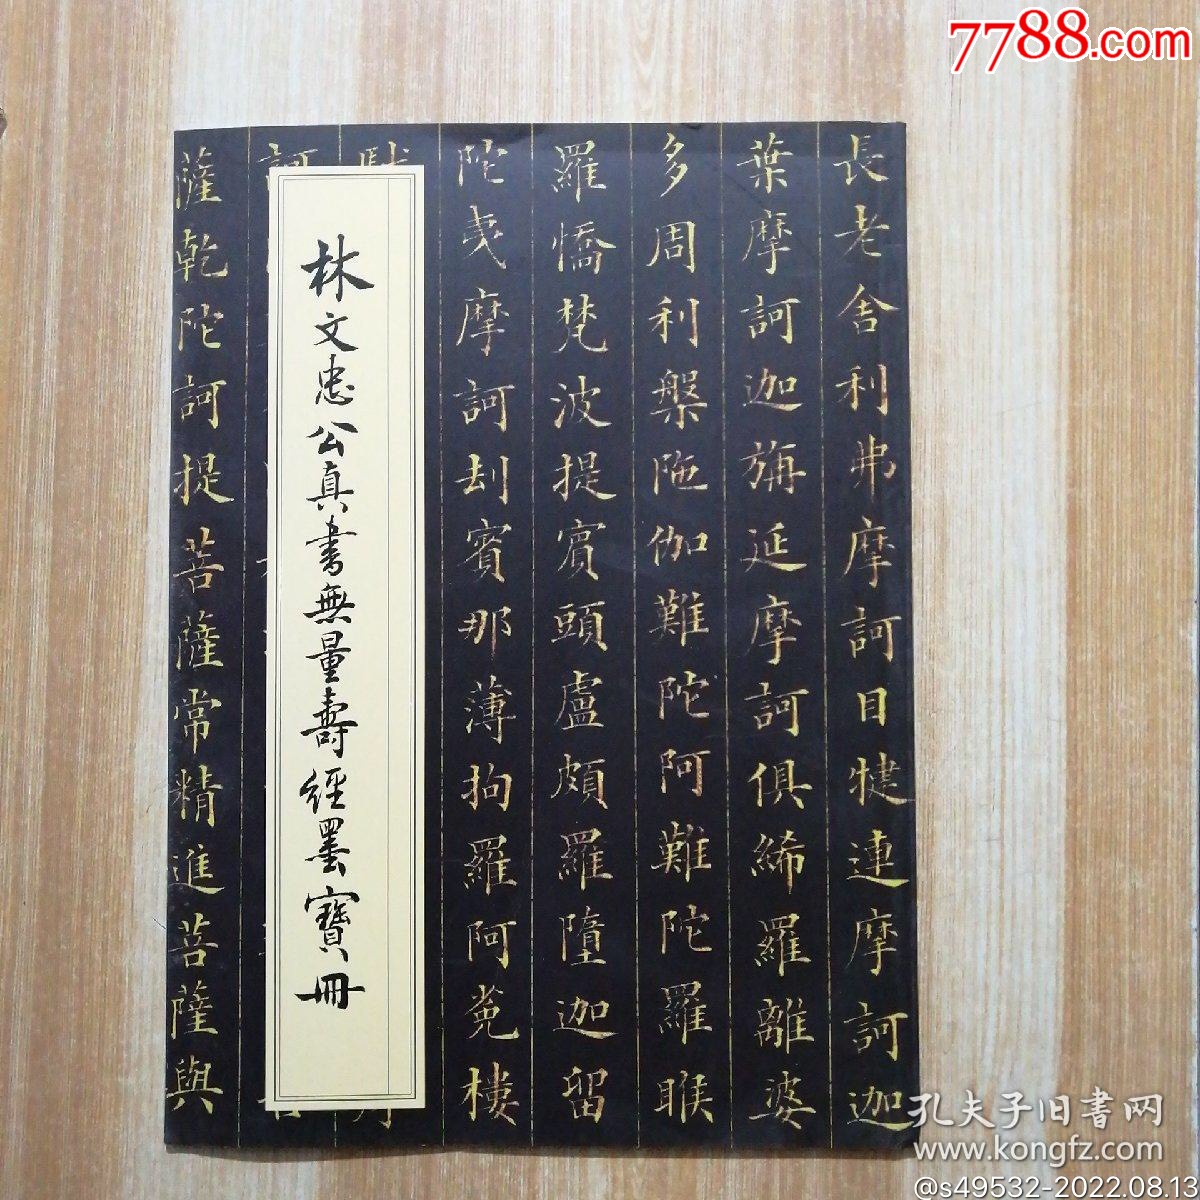 7788.com
長老舍利弗摩訶目犍連摩訶迦
葉摩訶迦旃延摩訶俱絺羅離婆
多周利槃陁伽難陀阿難陀羅睺
羅憍梵波提賓頭盧頗羅墮迦留
陀夷摩訶劫賓那薄拘羅阿㝹樓
林文忠公真書無量壽經墨寶冊
薩乾陀訶提菩薩常精進菩薩與
孔夫子旧書网
www.kongfz.com
@s49532-2022.08.13